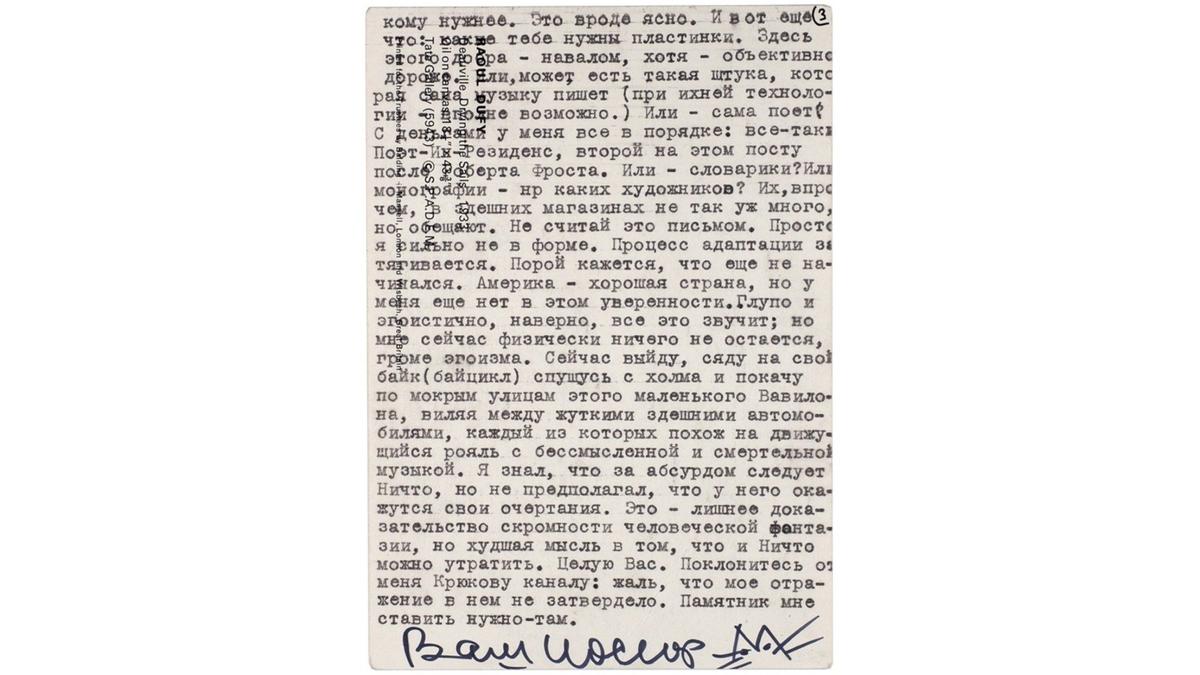 кому нужнее. Это вроде ясно. И вот еще (3
что: какие тебе нужны пластинки. Здесь
этого добра - навалом, хотя - объективно
дороже. Или, может, есть такая штука, кото
рая сама музыку пишет (при ихней техноло-
гии - вполне возможно.) Или - сама поет?
С деньгами у меня все в порядке: все-таки
Поэт-Ин-Резиденс, второй на этом посту
после Роберта Фроста. Или - словарики? Или
монографии - нр каких художников? Их, впро
чем, в здешних магазинах не так уж много,
но обещают. Не считай это письмом. Просто
я сильно не в форме. Процесс адаптации за
тягивается. Порой кажется, что еще не на-
чинался. Америка - хорошая страна, но у
меня еще нет в этом уверенности..Глупо и
эгоистично, наверно, все это звучит; но
мне сейчас физически ничего не остается,
громе эгоизма. Сейчас выйду, сяду на свой
байк(байцикл) спущусь с холма и покачу
по мокрым улицам этого маленького Вавило-
на, виляя между жуткими здешними автомо-
билями, каждый из которых похож на движу-
щийся рояль с бессмысленной и смертельной
музыкой. Я знал, что за абсурдом следует
Ничто, но не предполагал, что у него ока-
жутся свои очертания. Это - лишнее дока-
зательство скромности человеческой фанта-
зии, но худшая мысль в том, что и Ничто
можно утратить. Целую Вас. Поклонитесь от
меня Крюкову каналу: жаль, что мое отра-
жение в нем не затвердело. Памятник мне
ставить нужно-там.
Ваш Иосиф
RAOUL DUFY
Deauville, Drying the Sails 1933
Oil on canvas
Tate Gallery (5943) © S.P.A.D.E.M.